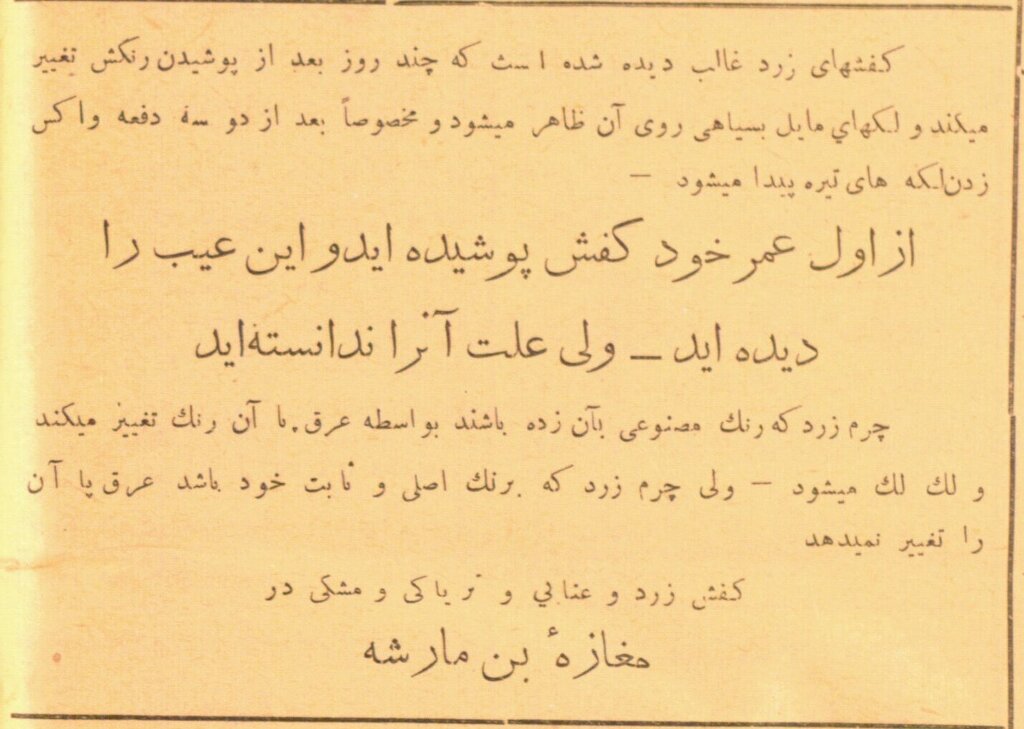 کفشهای زرد غالب دیده شده است که چند روز بعد از پوشیدن رنکش تغییر
میکند و لکهاي مایل بسیاهی روی آن ظاهر میشود و مخصوصاً بعد از دو سه دفعه واکس
زدن لکه های تیره پیدا میشود —
از اول عمر خود کفش پوشیده ایدو این عیب را
دیده اید — ولی علت آنرا ندانسته‌اید
چرم زرد که رنك مصنوعی بآن زده باشند بواسطه عرق پا آن رنك تغییر میکند
و لك لك میشود — ولی چرم زرد که برنك اصلی و ثابت خود باشد عرق پا آن
را تغییر نمیدهد
کفش زرد و عنابي و تریاکی و مشکی در
مغازهٔ بن مارشه